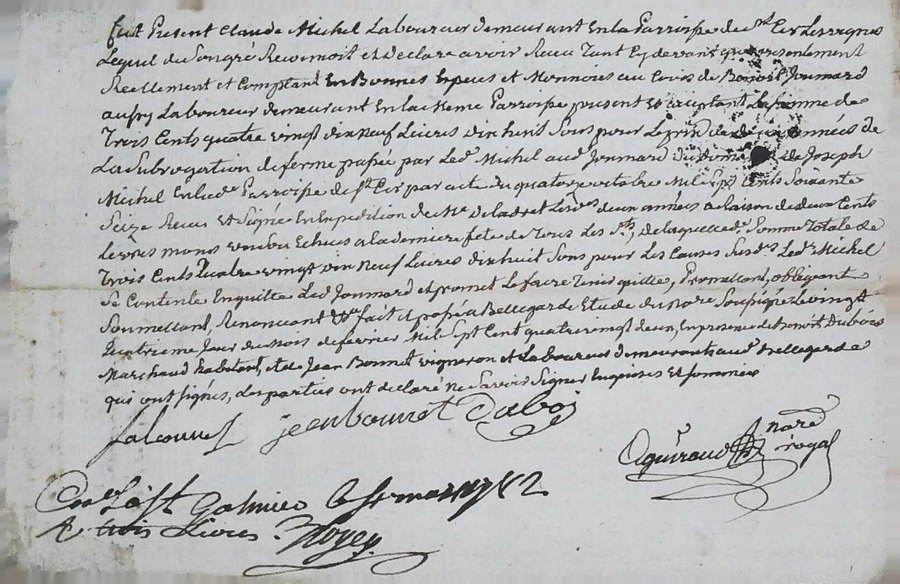 fut Present Claude Michel Laboureur demeurant En la Parroisse de St Cir Les vignes
Lequel de Son gré Reconnoit et declare avoir Receu Tant Cy devant que presentement
Reellement et Comptant En Bonnes Especes et Monnoies au Cours de Benoit Joumard
aussy Laboureur demeurant En la meme Parroisse present et acceptant La somme de
Trois Cents quatre vingt dix Neuf Livres dix huit Sous pour Le prix de deux années de
La Subrogation de ferme passée par Led. Michel aud. Joumard du Domaine de Joseph
Michel En lade. Parroisse de St Cir par acte du quatorze octobre Mil Sept Cents Soixante
Seize Receu Et Signé En Expedition de Me deux années a Raison de deux Cents
Livres moins Echues a la derniere fete de Tous Les Sts, de laquelle de. Somme Totale de
Trois Cents Quatre vingt dix Neuf Livres dix huit Sous pour Les Causes Susds. Led. Michel
Se Contente En quitte Led. Joumard et promet Le faire Tenir quitte, Promettant, obligeant
Soumettant, Renonçant &c. fait et passé a Bellegarde Etude du Nore Soussigné Le vingt
quatrieme Jour du mois de fevrier Mil Sept Cent quatre vingt deux, En presence de Benoit Dubois
Marchand habitant, et de Jean Bonnet vigneron et Laboureur demeurants aud. Bellegarde
qui ont signés, des parties ont declaré ne Savoir Signer Enquises Et sommées
jean bonnet Dubois
Nore
royal
Con.le a St Galmier Le mars 1782
R. trois Livres.